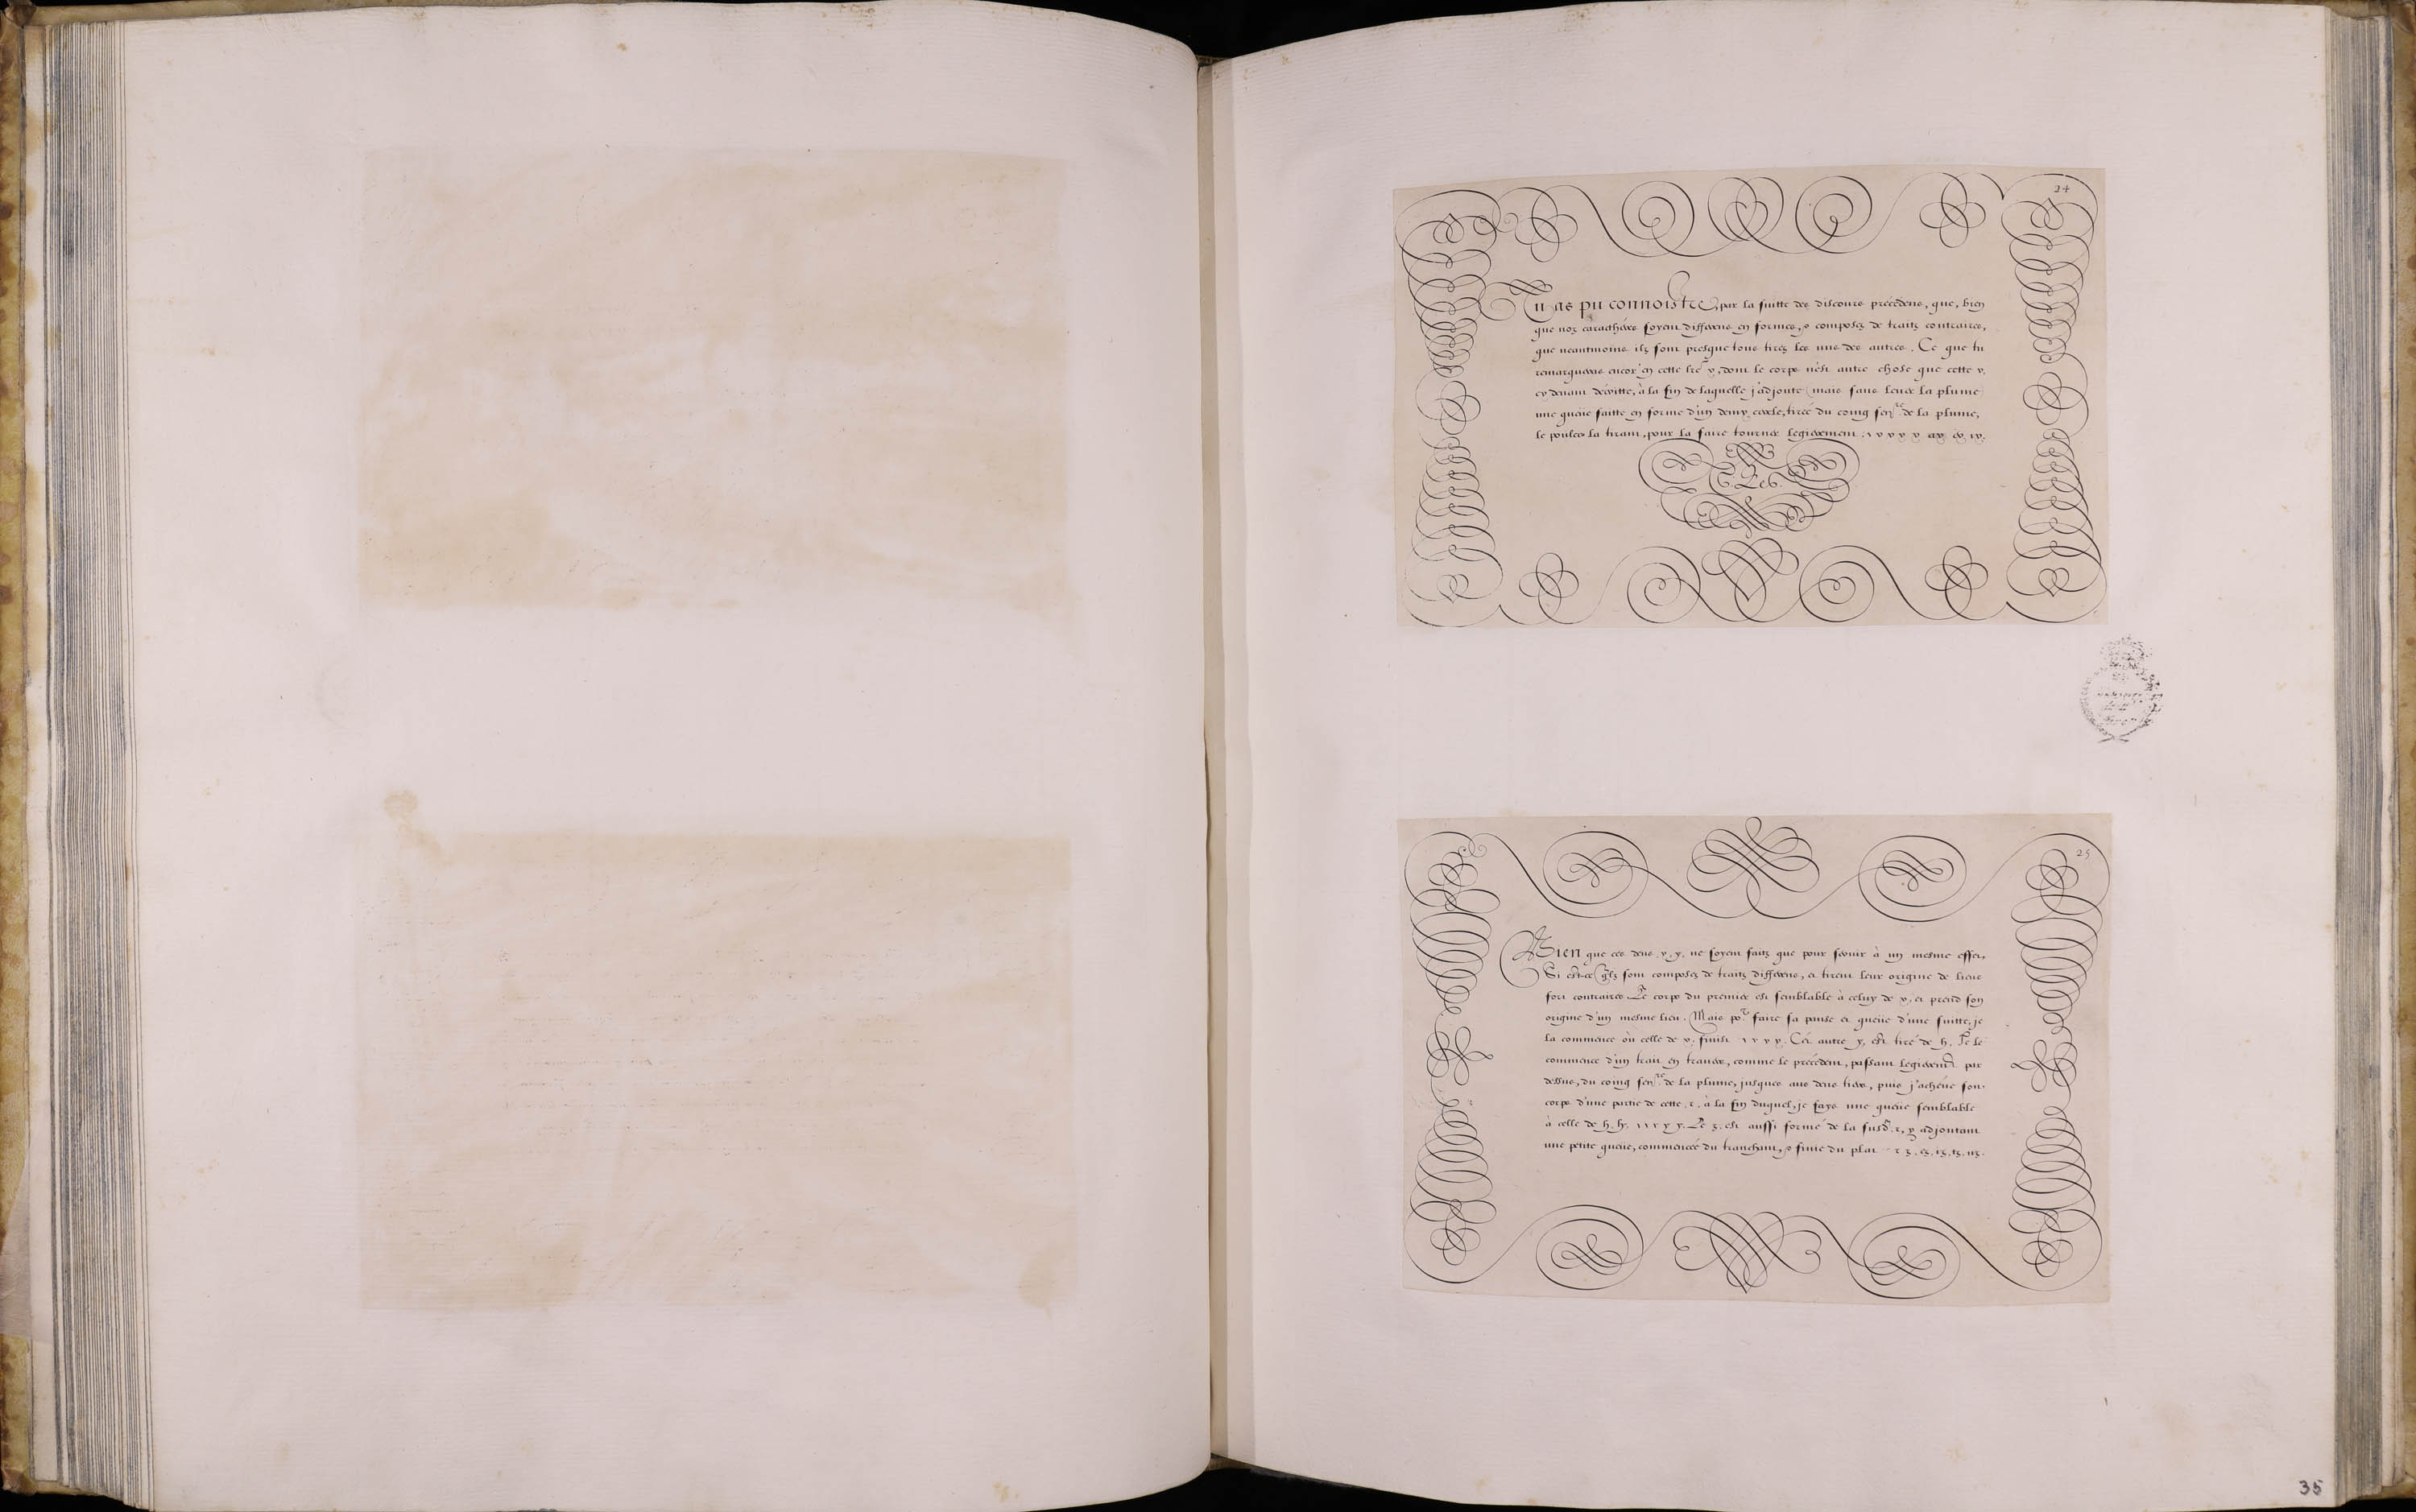 24
Tu as pu connoistre, par la suitte des discours précédens, que, bien
que noz caractheres soyent differens en formes, & composez de traitz contraires,
que neantmoins ilz sont presque tous tirez les uns des autres. Ce que tu
remarqueras encor' en cette lr̃e y, dont le corps n'est autre chose que cette v.
cy devant décritte, à la fin de laquelle j'adjoute (mais sans lever la plume)
une queüe faitte en forme d'un demy cercle, tirée du coing sen.tre de la plume,
le poulce la tirant, pour la faire tourner legierement: ı v v v y y ay ey iy.
25
Bien que ces deus y. y. ne soyent faitz que pour servir à un mesme effet,
Si est-ce qu'ilz sont composez de traitz differens, et tirent leur origine de lieus
fort contraires. Le corps du premier est semblable à celuy de v, et prend son
origine d'un mesme lieu. Mais po.r faire sa panse et queüe d'une suitte, je
la commence où celle de v. finist ı v v y. Cét autre y, est tiré de h. Je le
commence d'un trait en traver, comme le précédent, passant legierem.t par
dessus, du coing sen.tre de la plume, jusques aus deus tiers, puis j'achéve son
corps d'une partie de cette, r, à la fin duquel, je fays une queüe semblable
à celle de h. h. ı ı r y y. Le z. est aussi formé de la susd. r, y adjoutant
une petite queüe, commencée du tranchant, & finie du plat r z. ez. iz. tz. uz.
35